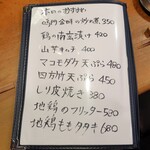 本日のおすすめ
鳴門金時の炒め煮 350
鶏の南蛮漬け 420
山芋キムチ 400
マコモダケ天ぷら 480
四方竹天ぷら 450
しり皮焼き 380
地鶏のフリッター 520
地鶏ももタタキ 680